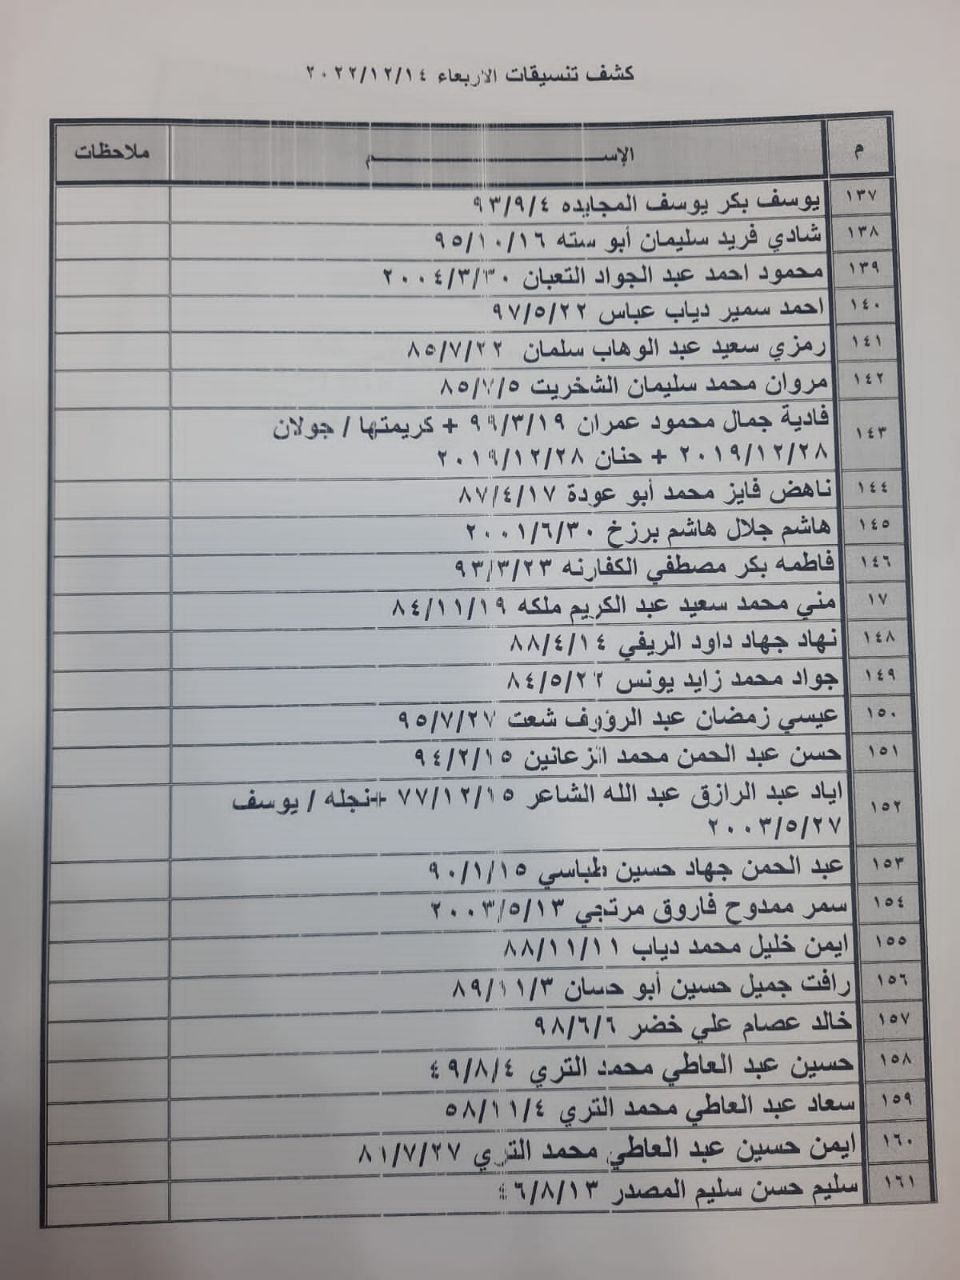 كشف تنسيقات الاربعاء ٢٠٢٢/١٢/١٤
م الإســـــــــــــم ملاحظات
١٣٧ يوسف بكر يوسف المجايده ٩٣/٩/٤
١٣٨ شادي فريد سليمان أبو سته ٩٥/١٠/١٦
١٣٩ محمود احمد عبد الجواد التعبان ٢٠٠٤/٣/٣٠
١٤٠ احمد سمير دياب عباس ٩٧/٥/٢٢
١٤١ رمزي سعيد عبد الوهاب سلمان ٨٥/٧/٢٢
١٤٢ مروان محمد سليمان الشخريت ٨٥/٧/٥
١٤٣ فادية جمال محمود عمران ٩٩/٣/١٩ + كريمتها / جولان
٢٠١٩/١٢/٢٨ + حنان ٢٠١٩/١٢/٢٨
١٤٤ ناهض فايز محمد أبو عودة ٨٧/٤/١٧
١٤٥ هاشم جلال هاشم برزخ ٢٠٠١/٦/٣٠
١٤٦ فاطمه بكر مصطفي الكفارنه ٩٣/٣/٢٣
١٧ مني محمد سعيد عبد الكريم ملكه ٨٤/١١/١٩
١٤٨ نهاد جهاد داود الريفي ٨٨/٤/١٤
١٤٩ جواد محمد زايد يونس ٨٤/٥/٢٢
١٥٠ عيسي زمضان عبد الرؤوف شعت ٩٥/٧/٢٧
١٥١ حسن عبد الحمن محمد الزعانين ٩٤/٢/١٥
١٥٢ اياد عبد الرازق عبد الله الشاعر ٧٧/١٢/١٥ +نجله / يوسف
٢٠٠٣/٥/٢٧
١٥٣ عبد الحمن جهاد حسين طباسي ٩٠/١/١٥
١٥٤ سمر ممدوح فاروق مرتجي ٢٠٠٣/٥/١٣
١٥٥ ايمن خليل محمد دياب ٨٨/١١/١١
١٥٦ رافت جميل حسين أبو حسان ٨٩/١١/٣
١٥٧ خالد عصام علي خضر ٩٨/٦/٦
١٥٨ حسين عبد العاطي محمد التري ٤٩/٨/٤
١٥٩ سعاد عبد العاطي محمد التري ٥٨/١١/٤
١٦٠ ايمن حسين عبد العاطي محمد التري ٨١/٧/٢٧
١٦١ سليم حسن سليم المصدر ٤٦/٨/١٣